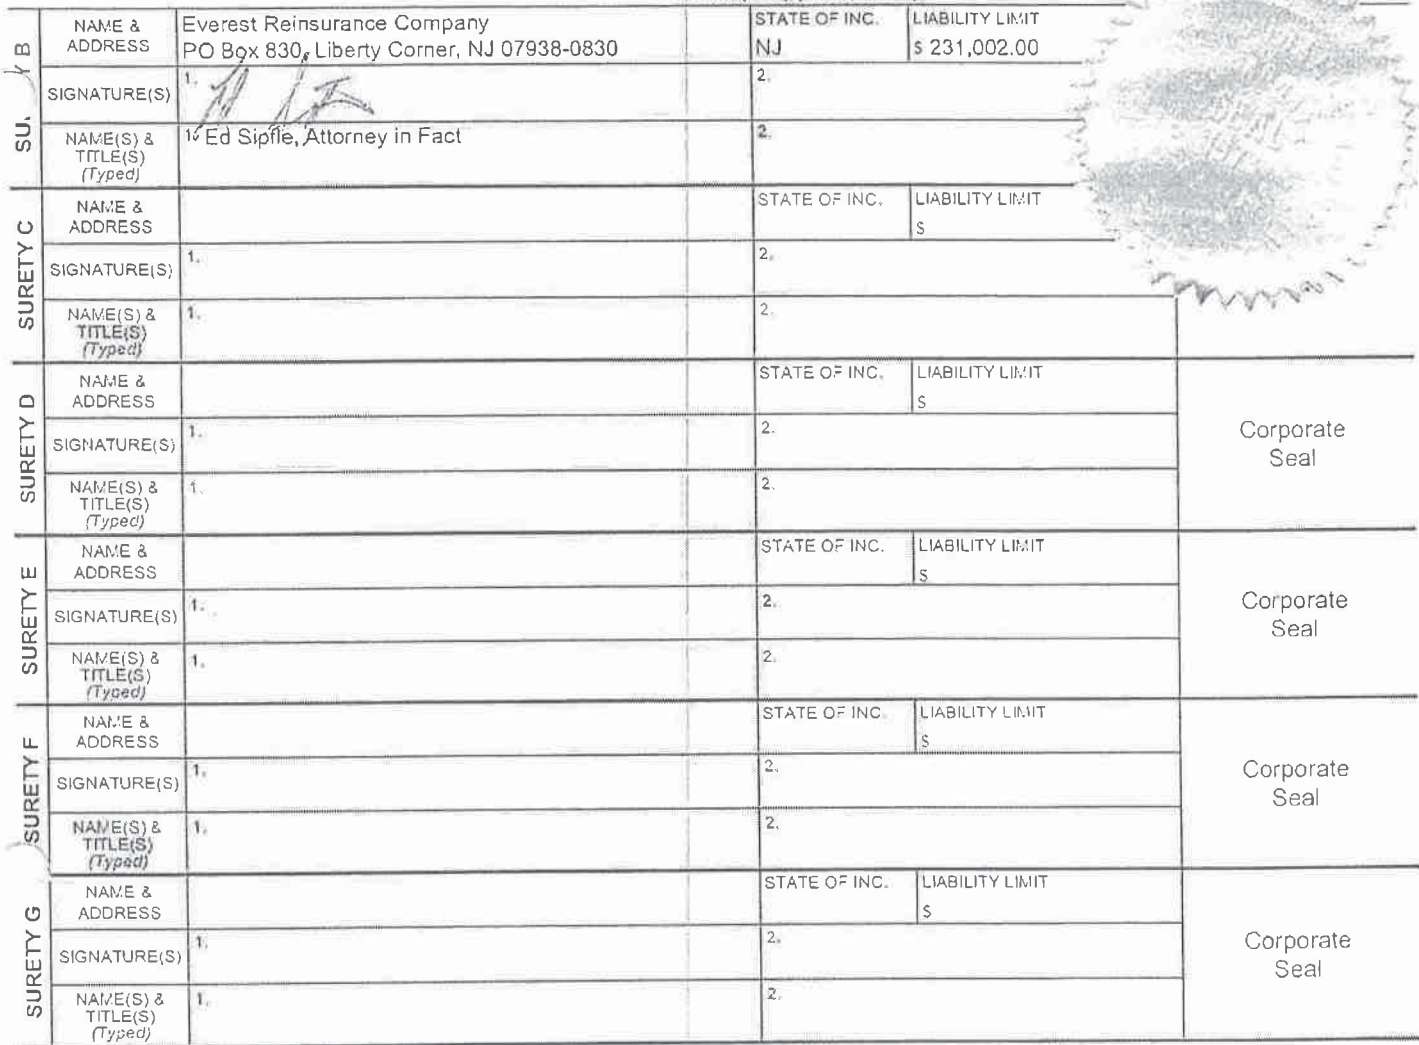 NAME & ADDRESS
Everest Reinsurance Company
PO Box 830, Liberty Corner, NJ 07938-0830
STATE OF INC.
NJ
LIABILITY LIMIT
$ 231,002.00
SIGNATURE(S)
1.
2.
NAME(S) & TITLE(S) (Typed)
1. Ed Sipfle, Attorney in Fact
2.
SURETY C
NAME & ADDRESS
STATE OF INC.
LIABILITY LIMIT
$
SIGNATURE(S)
1.
2.
NAME(S) & TITLE(S) (Typed)
1.
2.
SURETY D
NAME & ADDRESS
STATE OF INC.
LIABILITY LIMIT
$
SIGNATURE(S)
1.
2.
NAME(S) & TITLE(S) (Typed)
1.
2.
Corporate
Seal
SURETY E
NAME & ADDRESS
STATE OF INC.
LIABILITY LIMIT
$
SIGNATURE(S)
1.
2.
NAME(S) & TITLE(S) (Typed)
1.
2.
Corporate
Seal
SURETY F
NAME & ADDRESS
STATE OF INC.
LIABILITY LIMIT
$
SIGNATURE(S)
1.
2.
NAME(S) & TITLE(S) (Typed)
1.
2.
Corporate
Seal
SURETY G
NAME & ADDRESS
STATE OF INC.
LIABILITY LIMIT
$
SIGNATURE(S)
1.
2.
NAME(S) & TITLE(S) (Typed)
1.
2.
Corporate
Seal